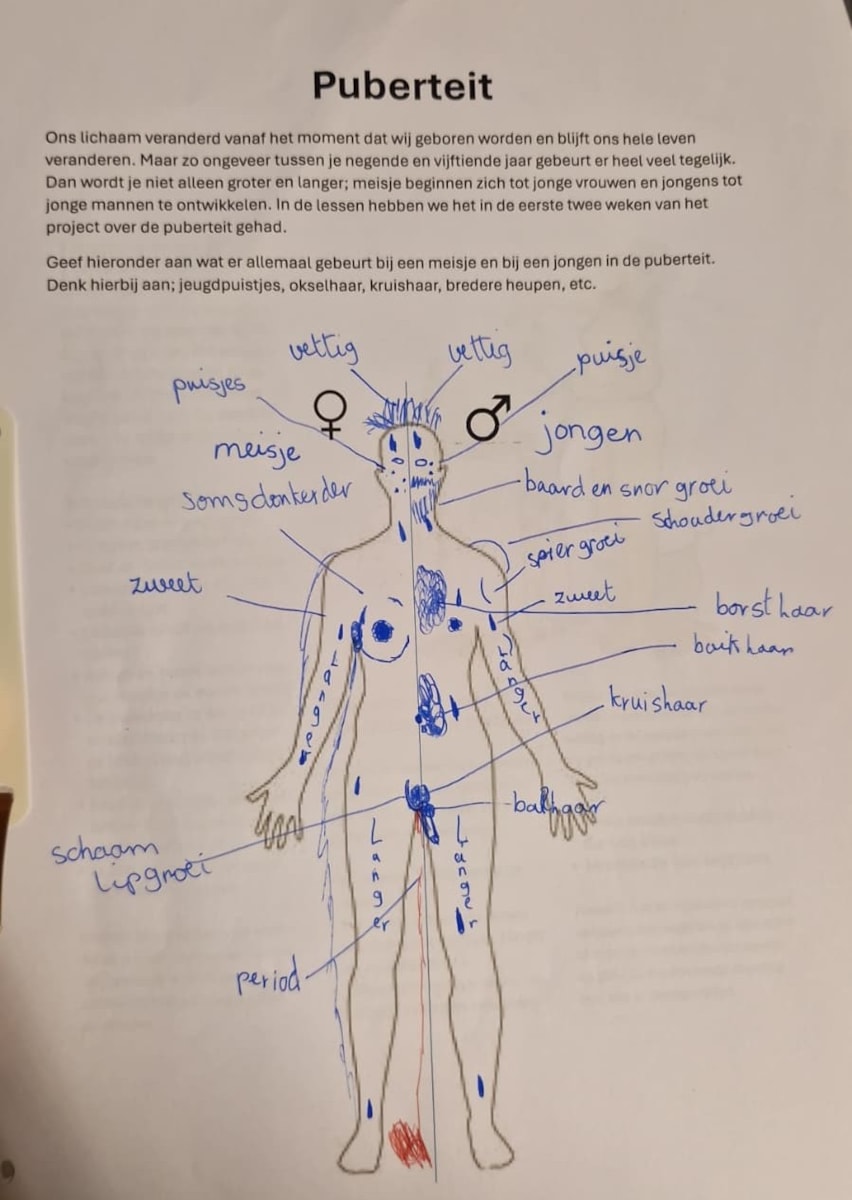 Puberteit
Ons lichaam veranderd vanaf het moment dat wij geboren worden en blijft ons hele leven
veranderen. Maar zo ongeveer tussen je negende en vijftiende jaar gebeurt er heel veel tegelijk.
Dan wordt je niet alleen groter en langer; meisje beginnen zich tot jonge vrouwen en jongens tot
jonge mannen te ontwikkelen. In de lessen hebben we het in de eerste twee weken van het
project over de puberteit gehad.
Geef hieronder aan wat er allemaal gebeurt bij een meisje en bij een jongen in de puberteit.
Denk hierbij aan; jeugdpuistjes, okselhaar, kruishaar, bredere heupen, etc.
vettig
vettig
puisjes
puisje
♀
♂
meisje
jongen
somsdonkerder
baard en snor groei
schoudergroei
spiergroei
zweet
zweet
borsthaar
buikhaar
Langer
Langer
kruishaar
balhaar
schaam
lipgroei
Langer
Langer
period